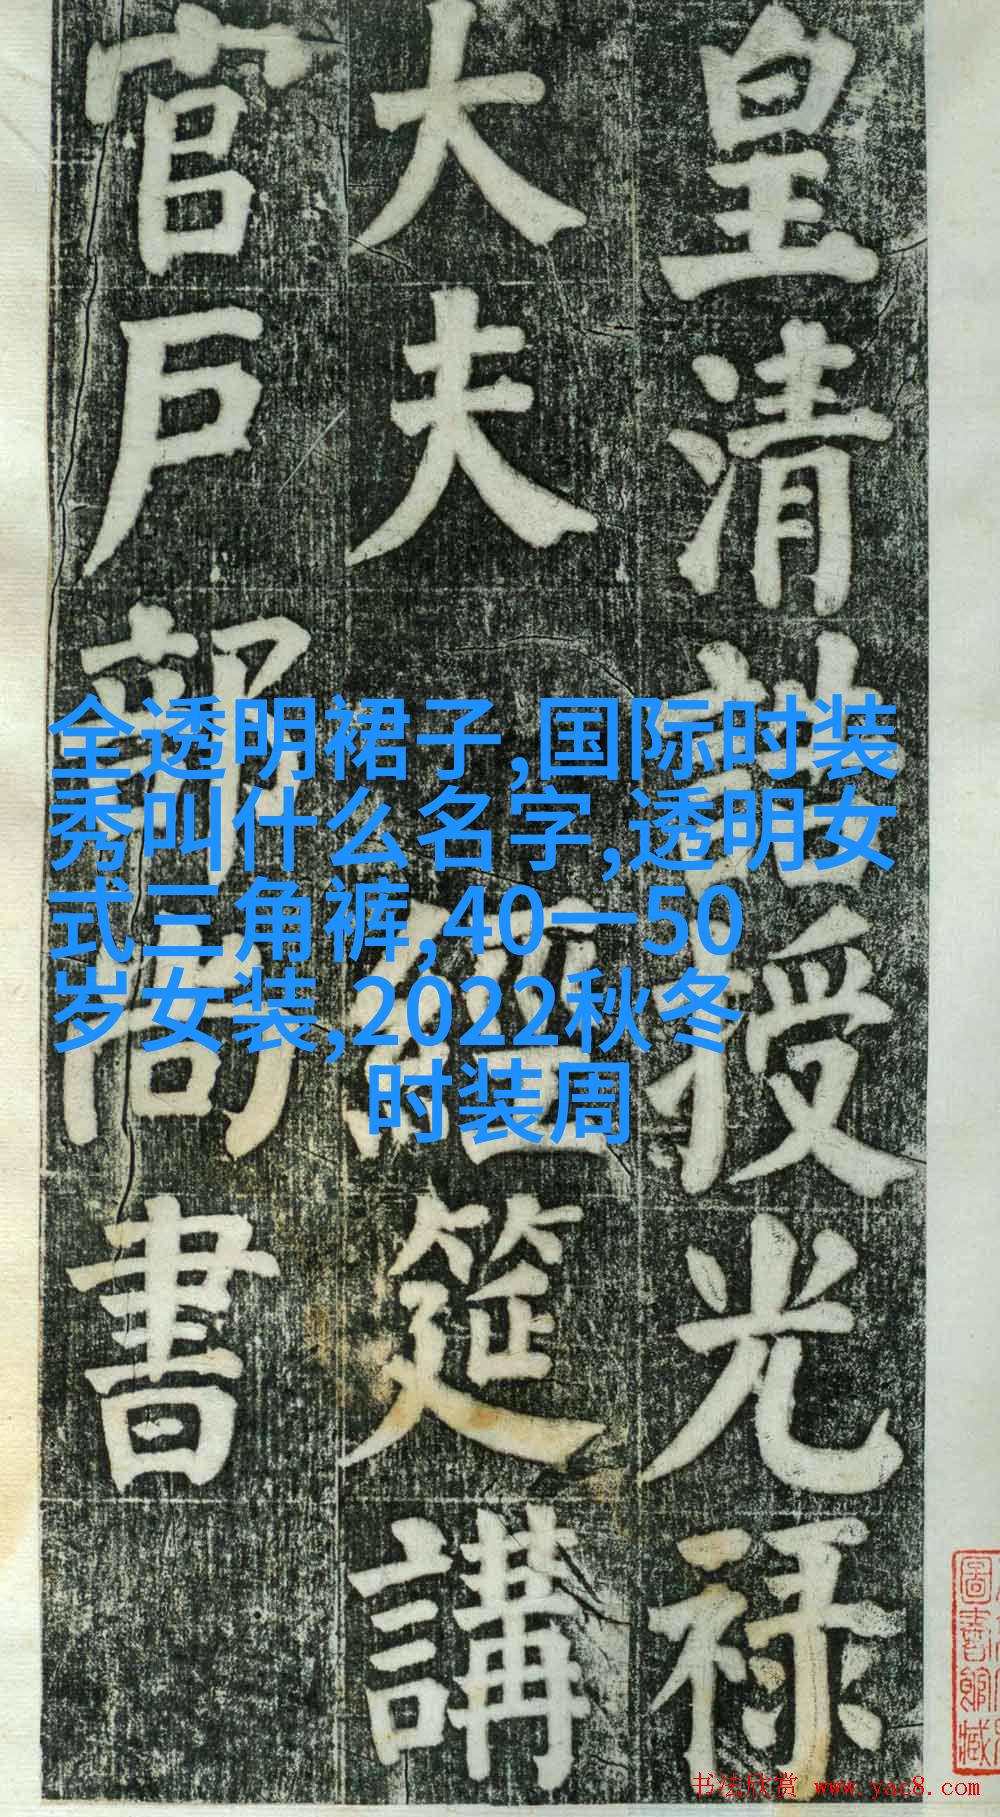 皇清誥授光祿
大夫 經筵講
官戶部尚書
全透明裙子,国际时装
秀叫什么名字,透明女
式三角裤,40一50
岁女装,2022秋冬
时装周
圖書館藏
书法欣赏 www.yac8.com